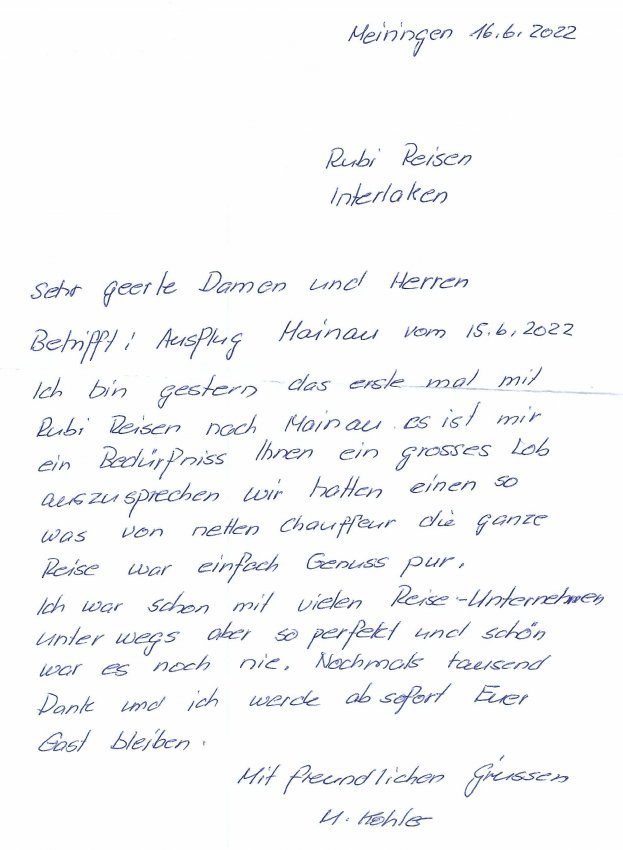 Meiringen 16.6.2022
Rubi Reisen
Interlaken
Sehr geerte Damen und Herren
Betrifft: Ausflug Mainau vom 15.6.2022
Ich bin gestern das erste mal mit
Rubi Reisen nach Mainau. es ist mir
ein Bedürfniss Ihnen ein grosses Lob
auszusprechen wir hatten einen so
was von netten Chauffeur die ganze
Reise war einfach Genuss pur.
Ich war schon mit vielen Reise-Unternehmen
unterwegs aber so perfekt und schön
war es noch nie. Nochmals tausend
Dank und ich werde ab sofort Euer
Gast bleiben.
Mit freundlichen Grüssen